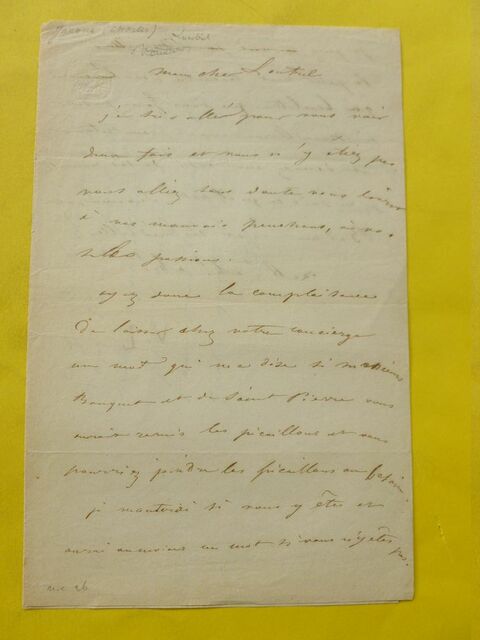 Mon cher Loubil
je suis allé pour vous voir
deux fois et vous n'y étiez pas
vous alliez sans doute vous livrer
à vos mauvais penchans, à vos
passions.
ayez donc la complaisance
de laisser chez votre concierge
un mot qui me dise si messieurs
Bouquet et de Saint Pierre vous
ont remis les picaillons et vous
pourriez joindre les picaillons au
je monterai si vous y êtes et
aurai au moins un mot si vous n'y êtes pas.